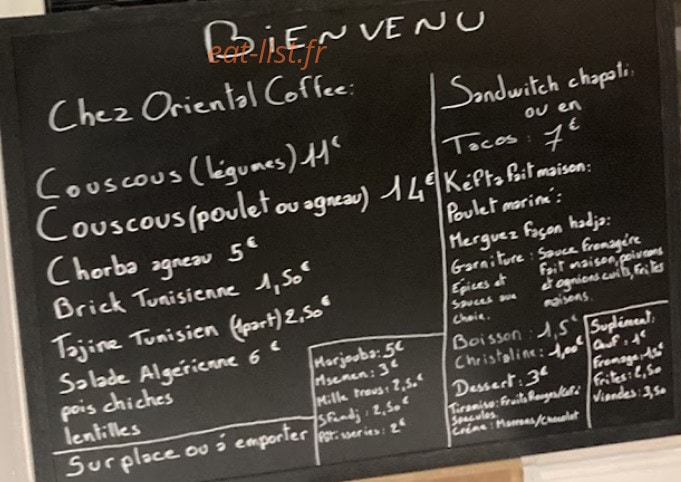 BiENVENU
eat-list.fr
Chez Oriental Coffee:
Couscous (légumes) 11€
Couscous (poulet ou agneau) 14€
Chorba agneau 5€
Brick Tunisienne 1,50€
Tajine Tunisien (1part) 2,50€
Salade Algérienne 6€
pois chiches
lentilles
Sur place ou à emporter
Marjouba: 5€
Msemen: 3€
Mille trous: 2,50€
Sfindj: 2,50€
Patisseries: 2€
Sandwitch chapati:
ou en
Tacos: 7€
Kéfta fait maison:
Poulet mariné:
Merguez façon hadja:
Garniture: Sauce fromagère
fait maison, poivrons
et ognions cuits, frites
Epices et
Sauces aux
choix.
maisons.
Boisson: 1,5€
Christaline: 1,00€
Dessert: 3€
Tiramiso: Fruits Rouges/Café
Speculos
Crème: Marrons/Chocolat
Suplément:
Oeuf: 1€
Fromage: 1,50
Frites: 2,50
Viandes: 3,50